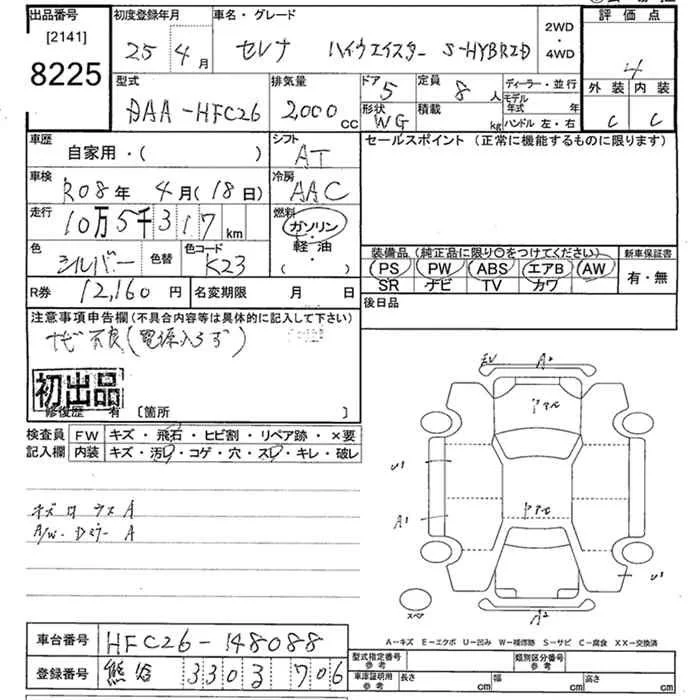 出品番号 初度登録年月 車名・グレード 評価点
[2141]
8225
25年 4月 セレナ ハイウェイスター S-HYBRID 2WD・4WD 4
型式 排気量 ドア 定員 ディーラー・並行 外装 内装
DAA-HFC26 2000cc 5 8人 モデル年式 年 C C
形状 WG 積載 kg ハンドル 左・右
車歴 シフト セールスポイント(正常に機能するものに限ります)
自家用・( ) AT
車検 冷房
R08年 4月(18日) AAC
走行 燃料
10万5千317km ガソリン・軽油・( )
色 シルバー 色替 色コード K23
装備品(純正品に限り○をつけてください) 新車保証書
PS PW ABS エアB AW 有・無
SR ナビ TV カワ
R券 12,160円 名変期限 月 日 後日品
注意事項申告欄(不具合内容等は具体的に記入して下さい)
ナビ不良(電源入らず)
初出品
修復歴 有 [箇所 ]
検査員記入欄 FW キズ・飛石・ヒビ割・リペア跡・×要
内装 キズ・汚・コゲ・穴・スレ・キレ・破レ
A/W・Dミラー A
A1
スペア
A2
A-キズ E-エクボ U-凹み W-補修跡 S-サビ C-腐食 XX-交換済
車台番号 HFC26-148088
登録番号 熊谷 330 3 706
型式指定番号 参考 類別区分番号 参考
車庫証明用 参考 長さ cm 幅 cm 高さ cm